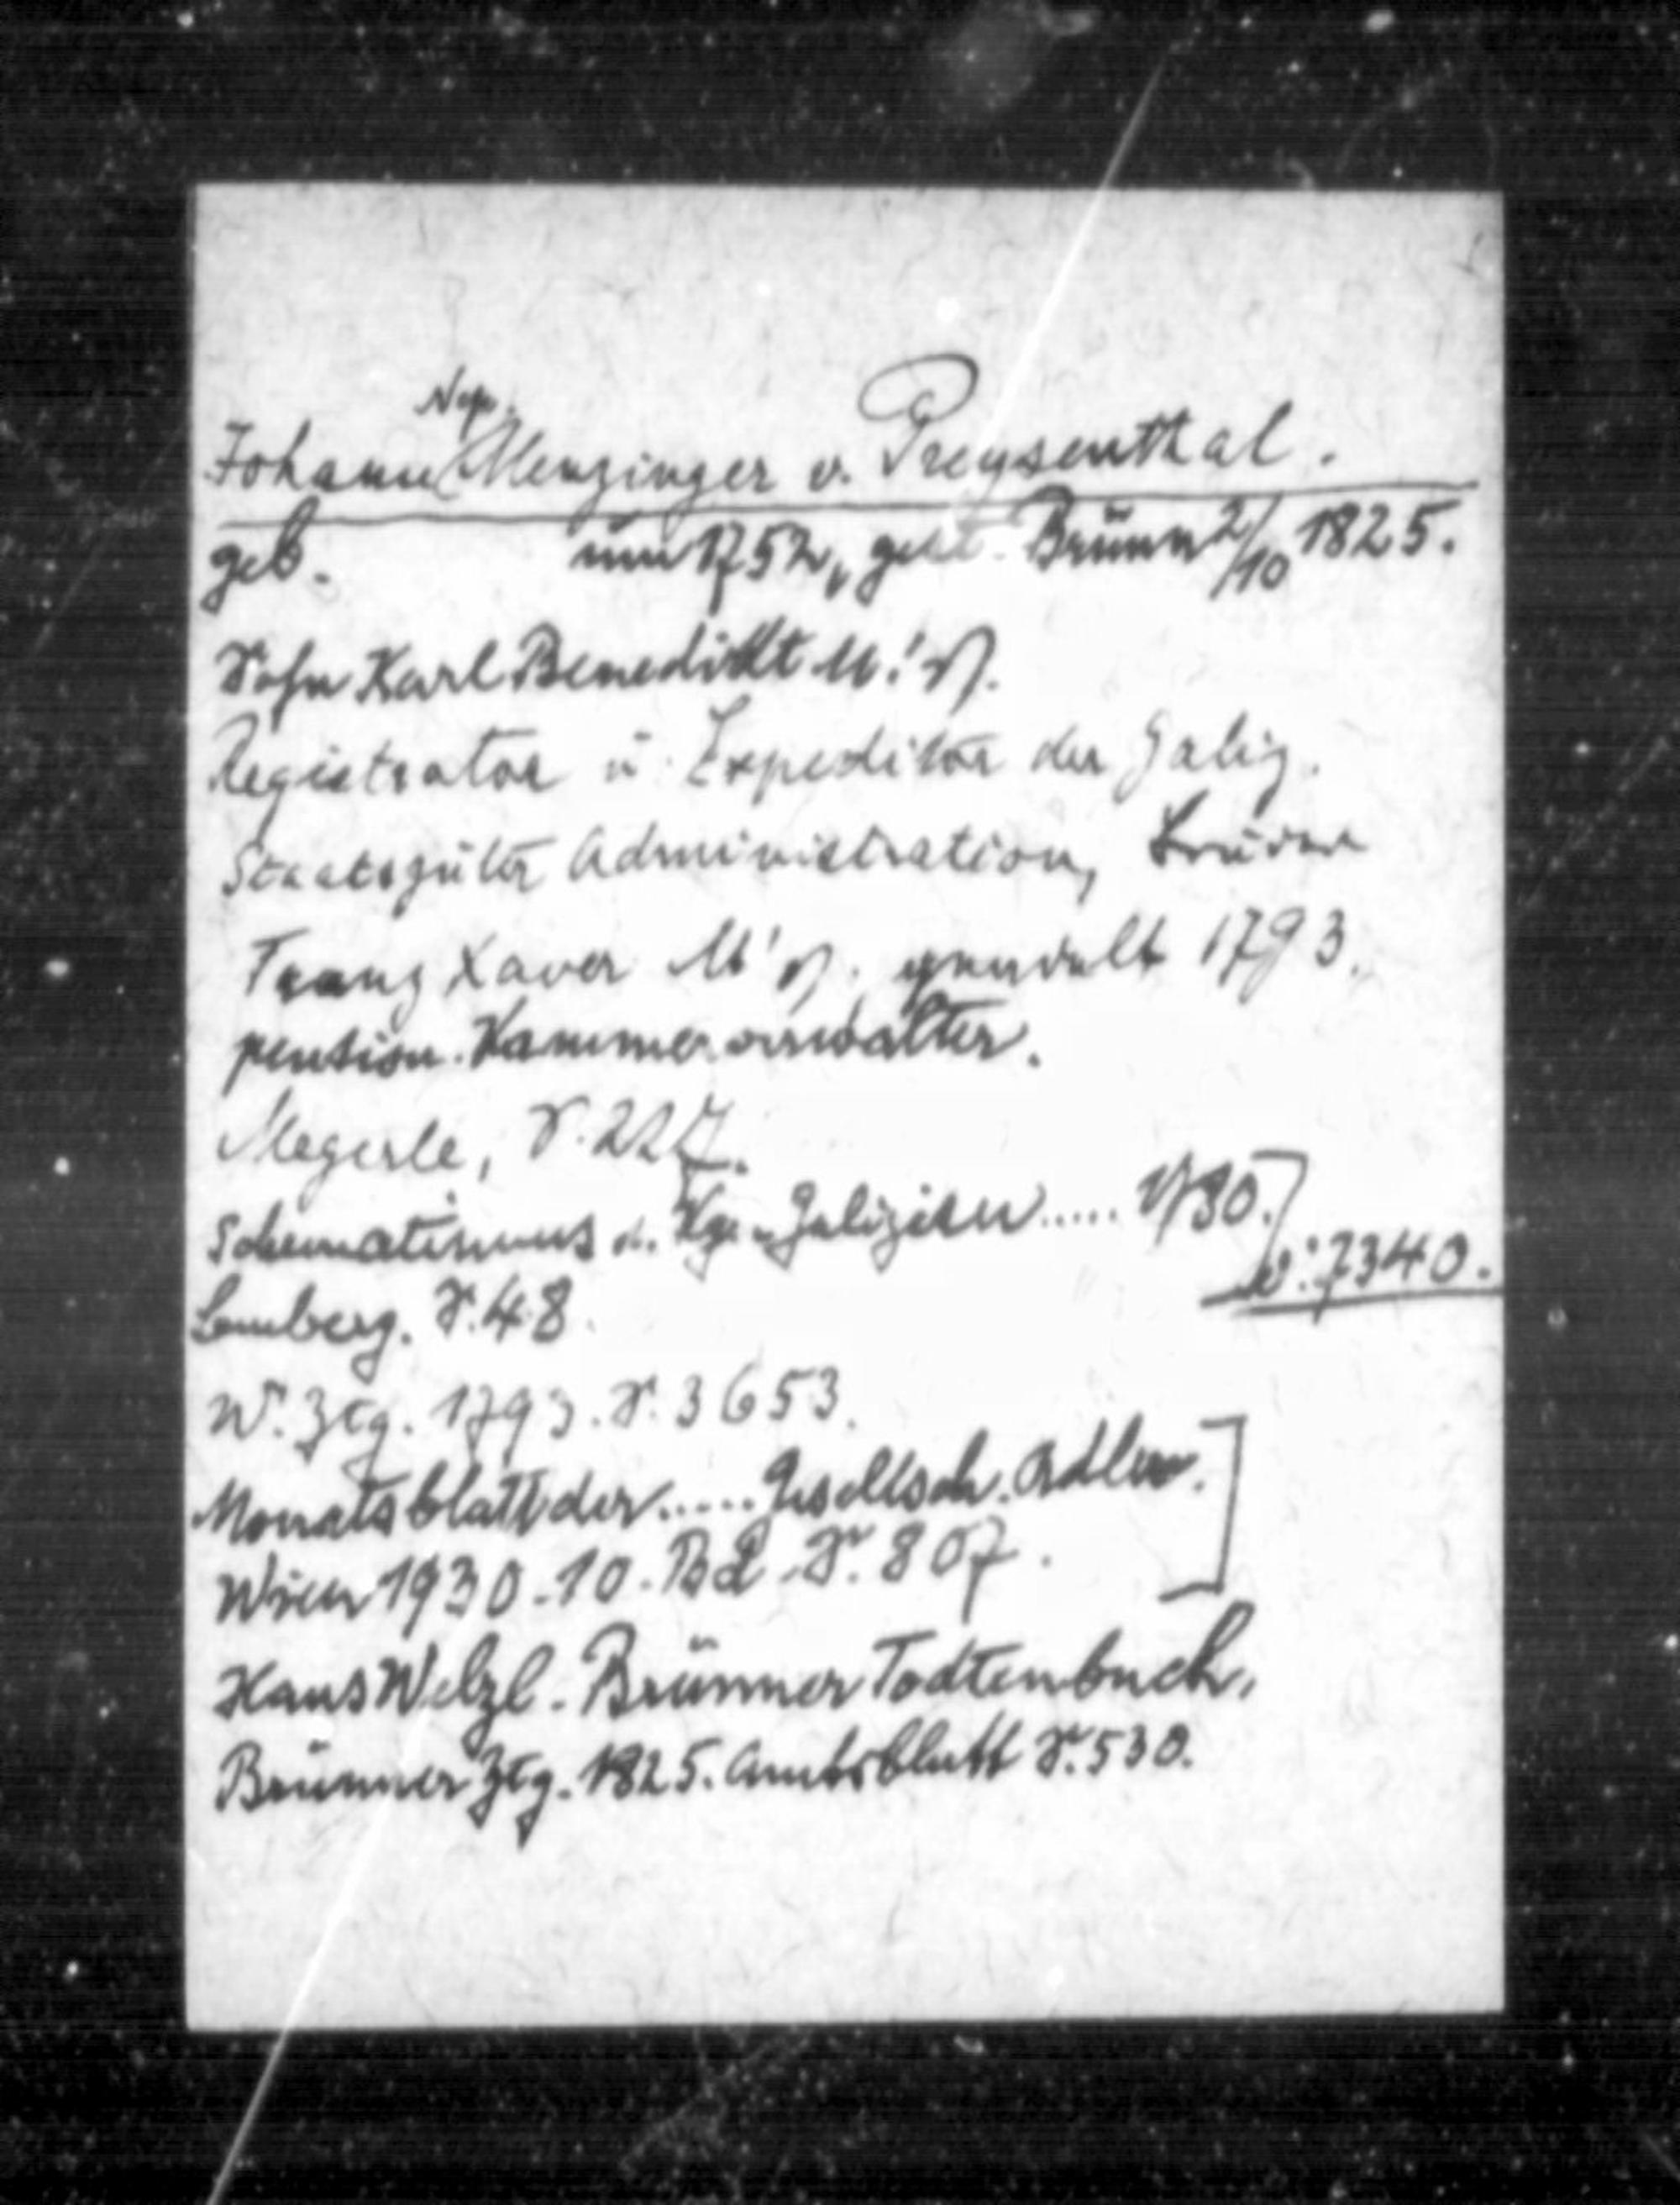 Johann Nep. Menzinger v. Preysenthal.
geb. um 1752, gest. Brünn 2/10 1825.
Sohn Karl Benedikt M.' s.
Registrator u. Expeditor der Galiz.
Staatsgüter Administration, Bruder
Franz Xaver M' s. geadelt 1793.
pension. Kammerverwalter.
Megerle, S. 227.
Schematismus d. Kge. Galizien ..... 1780.]
Lemberg. S. 48. W: 7340.
W. Ztg. 1793. S. 3653.
Monatsblatt der ..... Gesellsch. Adler.]
Wien 1930. 10. Bd. S. 807.
Hans Welzl. Brünner Todtenbuch,
Brünner Ztg. 1825. Amtsblatt S. 530.